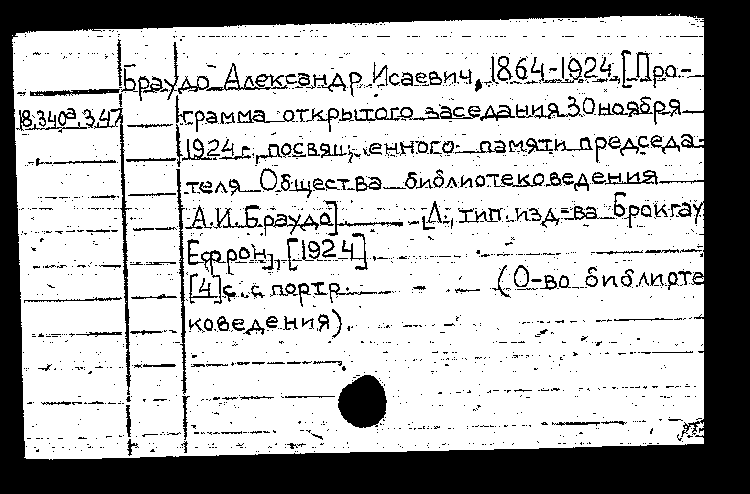 Браудо Александр Исаевич, 1864-1924. [Про-
18.340а.3.47 грамма открытого заседания 30 ноября
1924 г., посвящ, енного памяти председа-
теля Общества библиотековедения
А.И. Браудо]. [Л., тип. изд-ва Брокгау
Ефрон], [1924].
[4] с. с портр. (О-во библиоте
коведения).